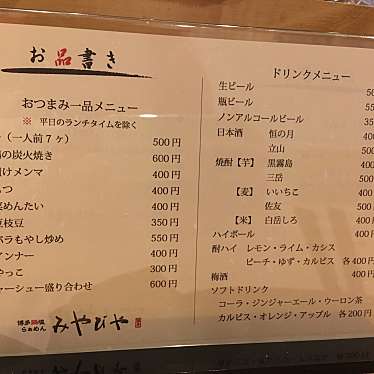 お品書き
おつまみ一品メニュー
※ 平日のランチタイムを除く
(一人前7ヶ) 500円
の炭火焼き 600円
けメンマ 400円
つ 400円
めんたい 400円
枝豆 350円
もやし炒め 550円
ンナー 400円
やっこ 300円
ャーシュー盛り合わせ 600円
博多 らぁめん みやびや
ドリンクメニュー
生ビール
瓶ビール
ノンアルコールビール 35
日本酒 恒の月
立山 50
焼酎【芋】 黒霧島
三岳
【麦】 いいちこ
佐友
【米】 白岳しろ
ハイボール
酎ハイ レモン・ライム・カシス
ピーチ・ゆず・カルピス 各400円
梅酒 400円
ソフトドリンク
コーラ・ジンジャーエール・ウーロン茶
カルピス・オレンジ・アップル 各200円